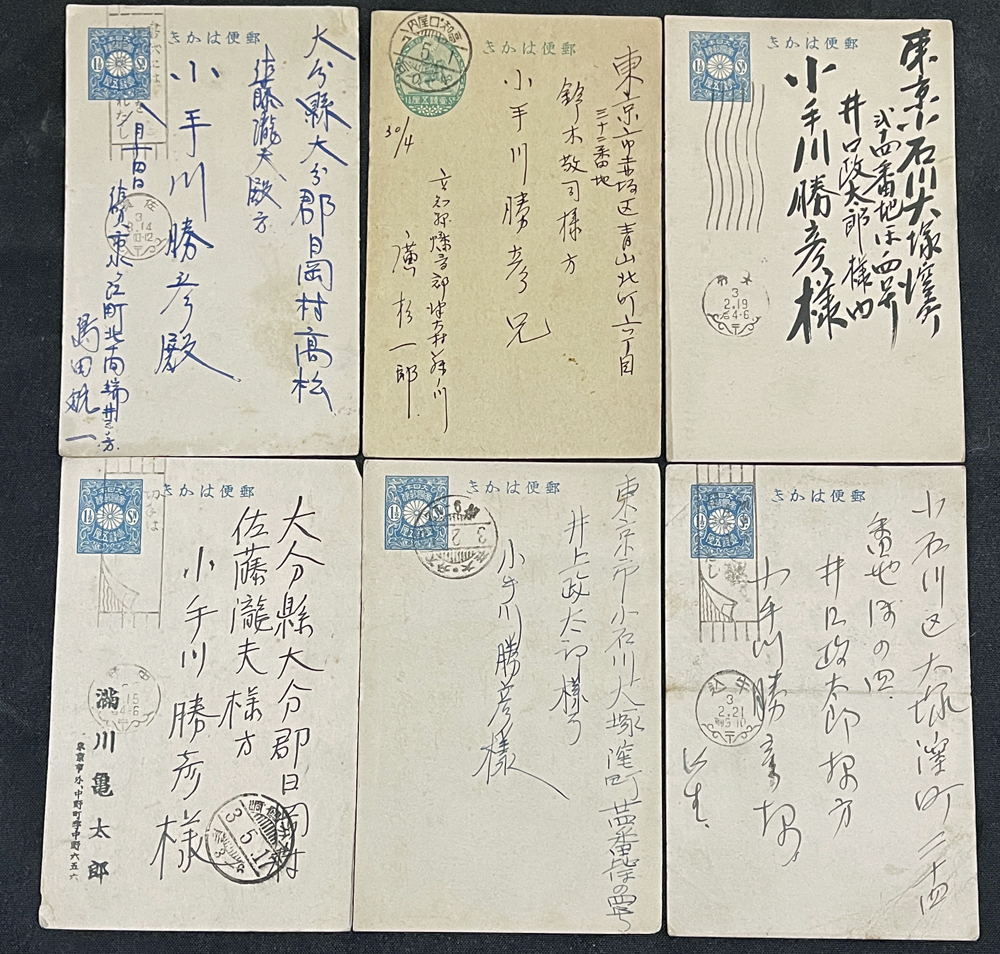 郵便はかき
大分縣大分郡日岡村高松
佐藤瀧夫殿方
小手川勝彦殿
八月十四日
3
8.14
10-12
郵便はかき
東京市赤坂区青山北町六丁目
三十三番地
鈴木敬司様方
小手川勝彦兄
30/4
廣杉一郎
5
郵便はかき
東京小石川大塚窪町
弐十四番地ほ四号
井口政太郎様内
小手川勝彦様
3
2.19
后4-6
郵便はかき
大分縣大分郡日岡村
佐藤瀧夫様方
小手川勝彦様
満川亀太郎
東京市外、中野町字中野六五六
3.5.17
郵便はかき
東京市小石川大塚窪町廿四番地ほの四号
井上政太郎様方
小手川勝彦様
郵便はかき
小石川区大塚窪町二十四
番地ほの四
井口政太郎様方
小手川勝彦様
牛込
3
2.21